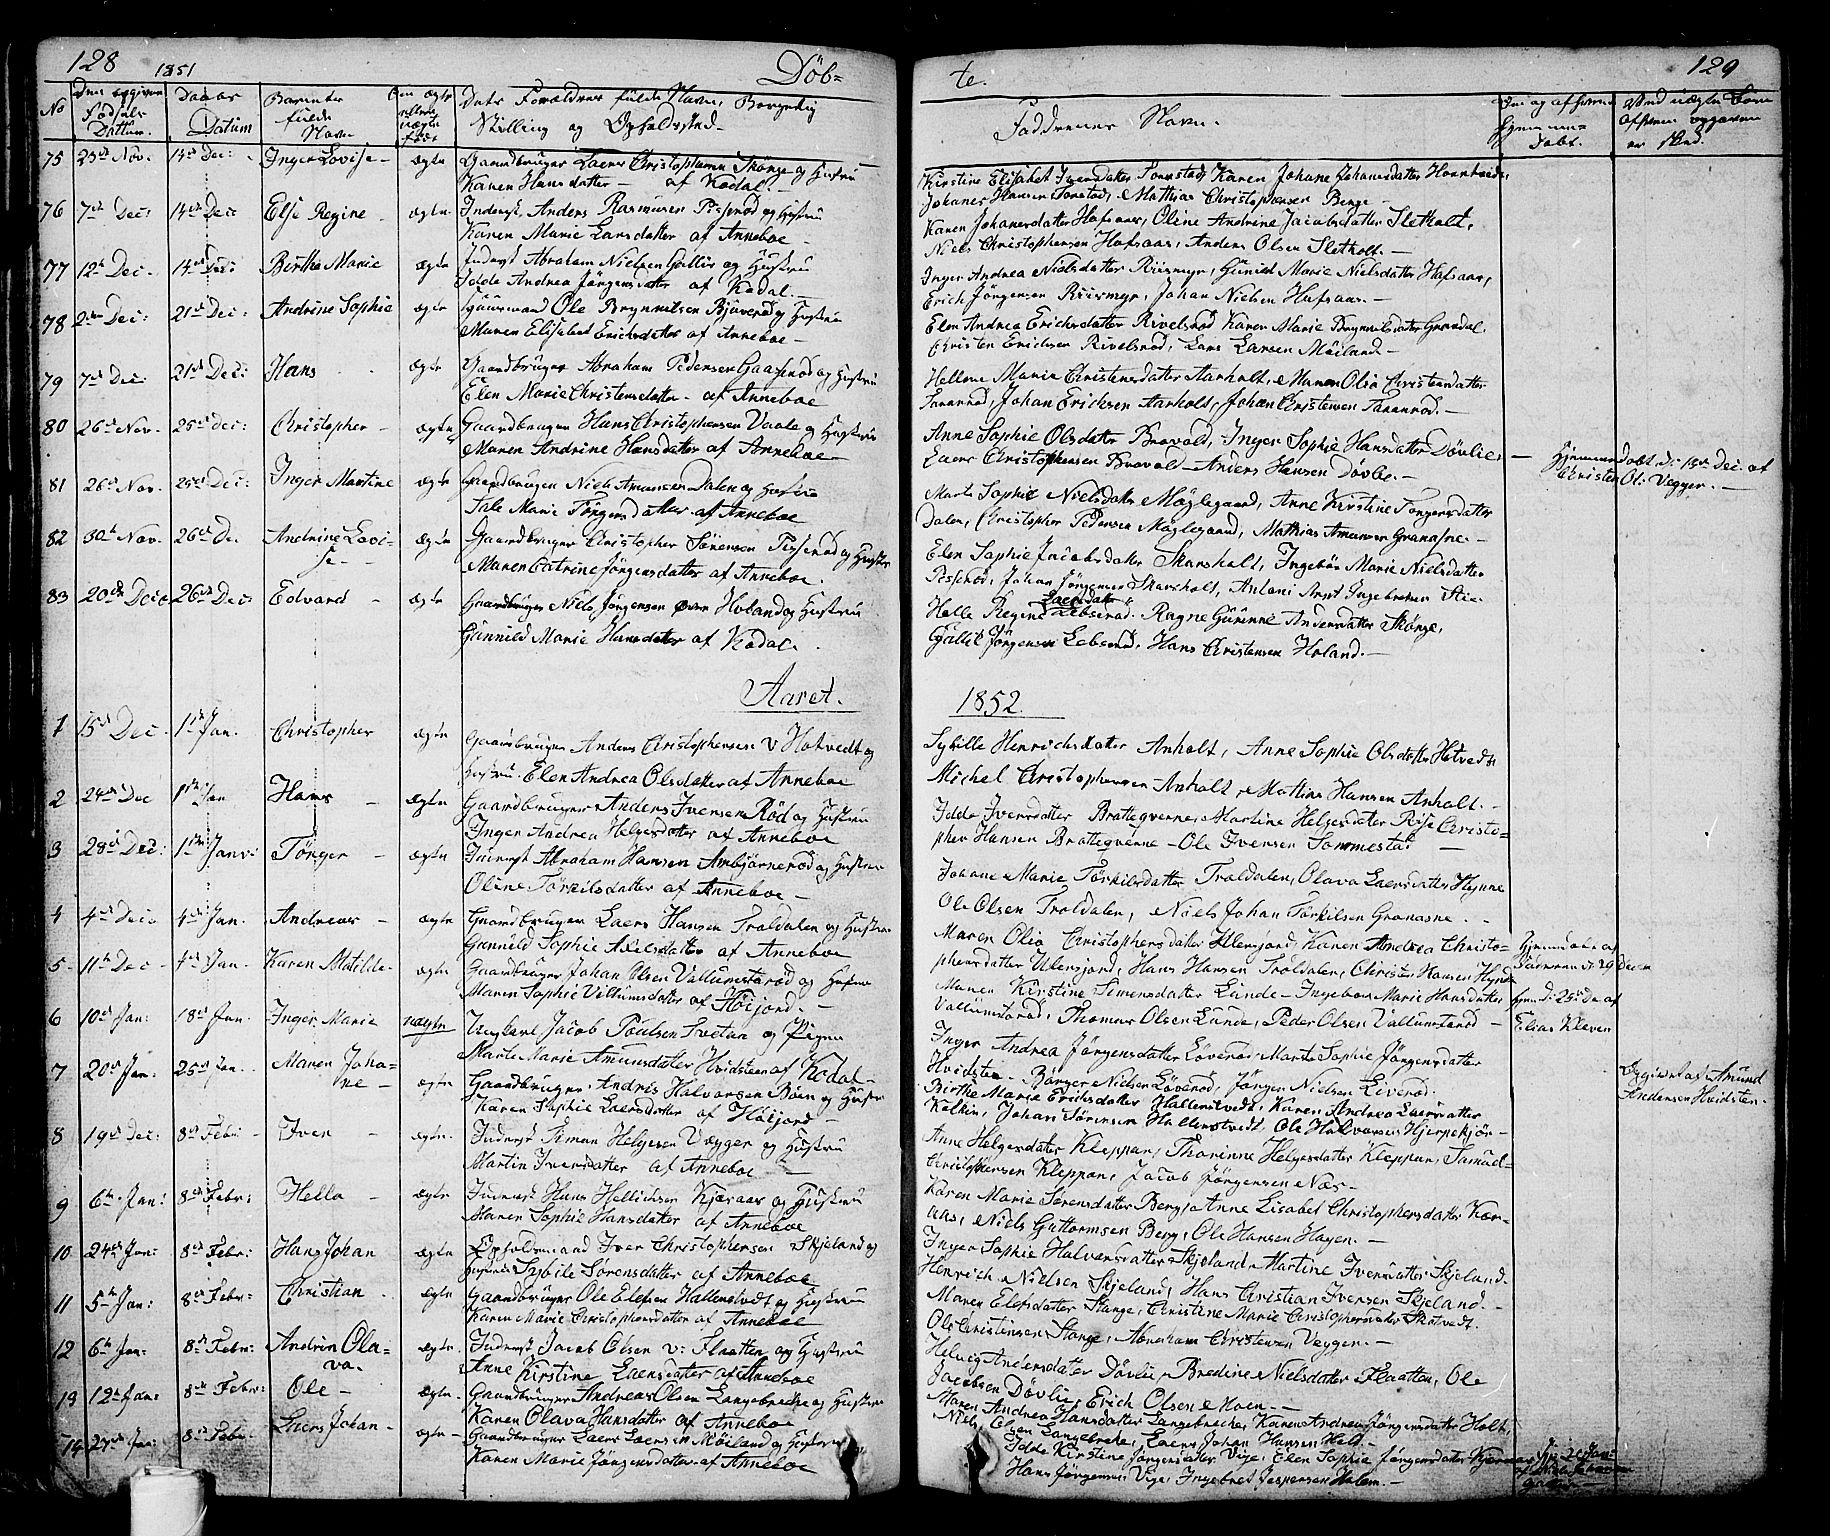 128 1851 Döb-
No
Den opgivne Fødsels Dattum.
Daabs Datum
Barnets fulde Navn
Om ægte eller uægte født
Dets Forældres fulde Navn, Borgerlig
Stilling og Opholdssted.
75 23de Nov. 14de Dec: Inger Lovise ægte Gaardbruger Laers Christophersen Skorge og Hustru
Karen Hansdatter af Kodal.
76 7de Dec: 14de Dec: Else Regine ægte Inderst Anders Rasmusen Tisserød og Hustru
Karen Marie Larsdatter af Anneboe
77 12te Dec. 14de Dec: Birthe Marie ægte Inderst Abraham Nielsen Gallis og Hustru
Idde Andrea Jörgensdatter af Kodal.
78 2den Dec: 21de Dec: Andrine Sophie ægte Huusmand Ole Brynnilsen Bjuerød og Hustru
Maren Elisebed Erichsdatter af Anneboe
79 7de Dec: 21de Dec: Hans ægte Gaardbruger Abraham Pedersen Gaaserød og Hustru
Elen Marie Christensdatter af Anneboe
80 26de Nov. 25de Dec: Christopher ægte Gaardbruger Hans Christophersen Vaale og Hustru
Maren Andrine Hansdatter af Anneboe
81 26de Nov. 25de Dec: Inger Martine ægte Gaardbruger Niels Amunsen Dalen og Hustru
Sale Marie Törgersdatter af Anneboe
82 30te Nov. 26de De. Andrine Lovi-
se ægte Gaardbruger Christopher Sörensen Tisserød og Hustru
Maren Catrine Jörgensdatter af Anneboe.
83 20de Dec. 26de Dec: Edvard ægte Gaardbruger Niels Jörgensen øvre Holand og Hustru
Gunnild Marie Hansdatter af Kodal.
Aaret.
1 15de Dec. 1ste Jan. Christopher ægte Gaardbruger Anders Christophersen v Hotvedt og
Hustru Elen Andrea Olsdatter af Anneboe
2 24de Dec 1ste Jan Hans ægte Gaardbruger Anders Iversen Rød og Hustru
Inger Andrea Helgesdatter af Anneboe
3 28de Dec: 1ste Janv: Törger ægte Inderst Abraham Hansen Ambjørnerød og Hustru
Oline Törkilsdatter af Anneboe
4 4de Dec. 4de Jan. Andreas ægte Gaardbruger Laers Hansen Troldalen og Hustru
Gunnild Sophie Axelsdatter af Anneboe
5 11te Dec 4de Jan. Karen Matilde ægte Gaardbruger Johan Olsen Vallumsrød og Hustru
Maren Sophie Villumsdatter af Höijord.
6 10de Jan: 18de Jan. Inger Marie uægte Ungkarl Jacob Poulsen Svetan og Pigen
Marte Marie Amunsdatter Hvidsteen af Kodal
7 20de Jan: 25de Jan. Maren Joha-
ne ægte Gaardbruger Andris Halvorsen Böen og Hustru
Karen Sophie Laersdatter af Höijord
8 19de Dec: 8de Febr: Iver ægte Inderst Simon Helgesen Vegger og Hustru
Martin Iversdatter af Anneboe
9 6te Jan: 8de Febr: Hella ægte Inderst Hans Hellichsen Kjæraas og Hustru
Maren Sophie Hansdatter af Anneboe
10 24de Jan: 8de Febr: Hans Johan ægte Opholdsmand Iver Christophersen Skjeland og
Hustru Sybile Sörensdatter af Anneboe
11 5te Jan: 8de Febr: Christian ægte Gaardbruger Ole Elefsen Hallenstvedt og Hustru
Karen Marie Christophersdatter af Anneboe
12 6te Jan: 8de Febr: Andrin Ola-
va. ægte Inderst Jacob Olsen v: Flaatten og Hustru
Anne Kirstine Laersdatter af Anneboe
13 12te Jan: 8de Febr: Ole ægte Gaardbruger Andreas Olsen Langebrekke og Hustru
Karen Olava Hansdatter af Anneboe
14 27de Jan: 8de Febr. Laers Johan ægte Gaardbruger Laers Laersen Möiland og Hustru
Karen Marie Jörgensdatter af Anneboe
te. 129
Faddrenes Navn.
Om og af hvem hjemmedøbt.
Ved uægte Børn af hvem opgaven er sked.
Kirstine Elisabet Iversdatter Sommestad, Karen Johane Johanesdatter
Johanes Hansen Sommestad, Mathias Christophersen Berge
Karen Johanesdatter Hafsaas, Oline Andrine Jacobsdatter Sletholt,
Niels Christophersen Hafsaas, Anders Olsen Sletholt.
Inger Andrea Nielsdatter Riismyr, Gunild Marie Nielsdatter Hafsaas,
Erich Jörgensen Riismyr, Johan Nielsen Hafsaas.
Elen Andrea Erichsdatter Rivelsrød, Karen Marie Brynnilsdatter Grondal,
Christen Erichsen Rivelsrød, Lars Larsen Möiland
Hellene Marie Christensdatter Aarholt, Maren Olia Christensdatter
Taranrød, Johan Erichsen Aarholt, Johan Christensen Taranrød.
Anne Sophie Olsdatter Bravold, Inger Sophie Hansdatter Dövlie,
Laers Christophersen Bravold, Anders Hansen Dövle.
Hjemmedøbt d. 13de Dec. af
Christen Ols Vegger.
Marte Sophie Nielsdatter Møglegaard, Anne Kirstine Torgersdatter
Dalen, Christopher Pedersen Møglegaard, Mathias Amunsen Granasne.
Elen Sophie Jacobsdatter Skarsholt, Ingebör Marie Nielsdatter
Tisserød, Johan Jörgensen Skarsholt, Antoni Arnt Ingebretsen
Helle Regine Laersdatter Lebserød, Ragne Gurine Andersdatter Skorge,
Gallik Jörgensen Lebserød, Hans Christensen Holand.
1852
Sybille Henrichsdatter Anholt, Anne Sophie Olsdatter Hotvedt
Michel Christophersen Anholt, Mathias Hansen Anholt.
Idde Iversdatter Bratteqverne, Martine Helgesdatter Rise, Christo-
pher Hansen Bratteqverne, Ole Iversen Sommestad
Johane Marie Törkilsdatter Troldalen, Olava Laersdatter Hynne
Ole Olsen Troldalen, Niels Johan Törkilsen Granasne.
Maren Olia Christophersdatter Ulensjord, Karen Andrea Christo-
phersdatter Ulensjord, Hans Hansen Troldalen, Christen Hansen Hynde
Maren Kirstine Simensdatter Lunde, Ingeborg Marie Hansdatter
Vallumsrød, Thomas Olsen Lunde, Peder Olsen Vallumsrød
Hjem d: 25de De af
Elias Kleven
Inger Andrea Jörgensdatter Löverød, Marte Sophie Jörgensdatter
Hvidsten, Borger Nielsen Löverød, Jörger Nielsen Liverød.
Opgivet af Amund
Andersen Hvidsten.
Birthe Marie Erichsdatter Hallenstvedt, Karen Andrea Laersdatter
Kolkin, Johan Sörensen Hallenstvedt, Ole Halvorsen Hjerpekjön
Anne Helgesdatter Kleppan, Thorinne Helgesdatter Kleppan, Samuel
Christophersen Kleppan, Jacob Jörgensen Næs
Karen Marie Sorensdatter Berg, Anne Lisabet Christophersdatter Kær-
aas, Niels Guttormsen Berg, Ole Hansen Hagen.
Inger Sophie Halvorsdatter Skjeland, Martine Iversdatter Skjeland.
Henrich Nielsen Skjeland, Hans Christian Iversen Skjeland.
Maren Elefsdatter Stange, Christine Marie Christophersdatter Skotvedt.
Ole Christensen Stange, Abraham Christensen Veggen.
Helvig Andersdatter Dövlie, Bredine Nielsdatter Flaatten, Ole
Jacobsen Dövlie, Erich Olsen Moen.
Maren Andrea Hansdatter Langebrekke, Karen Andrea Jörgensdatter Holt,
Niels Olsen Langebrekke, Laers Johan Hansen Holt.
Idde Kirstine Jörgensdatter Vige, Elen Sophie Jörgensdatter Kjeraas
Hans Jörgensen Vige, Ingebret Jespersen Holem.